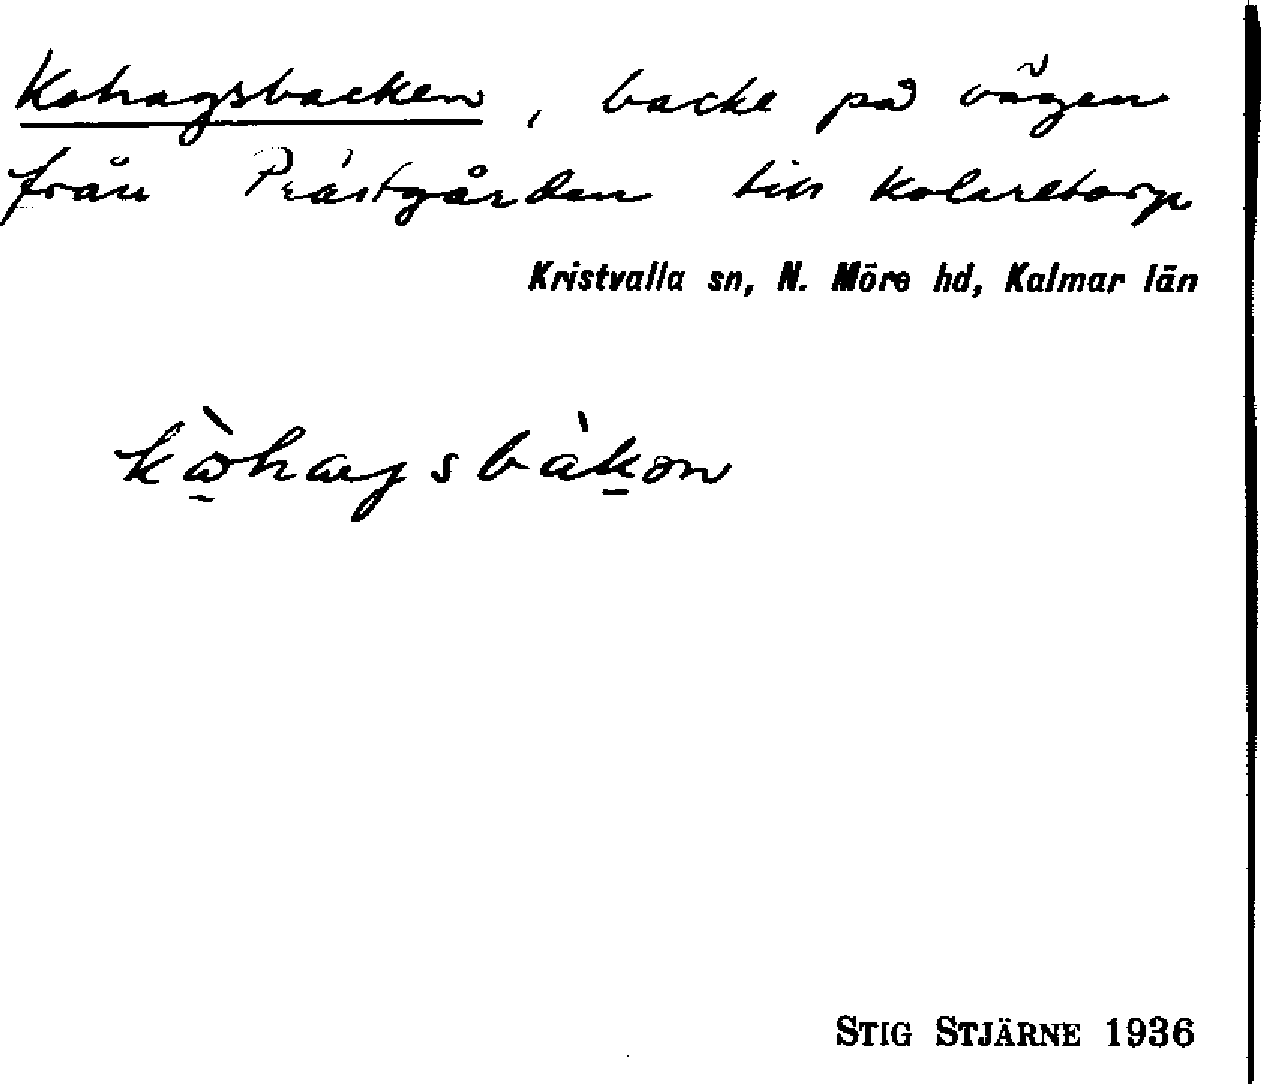 Kohagsbacken, backe på vägen
från Prästgården till Kolaretorp
Kristvalla sn, N. Möre hd, Kalmar län
STIG STJÄRNE 1936